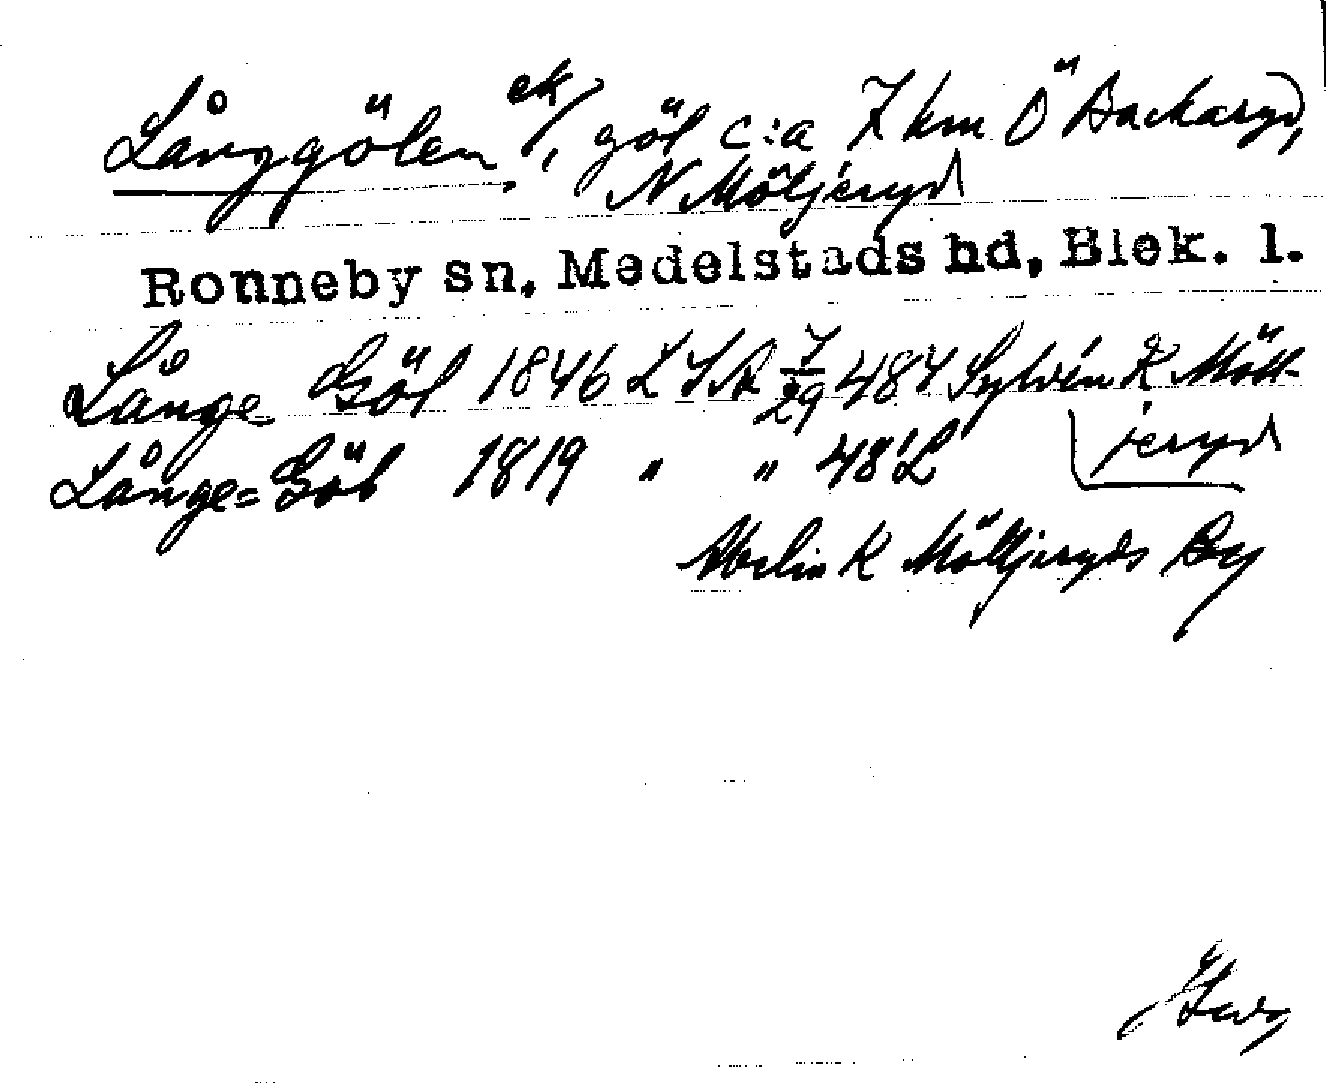 Långgölen ek/, göl c:a 7 km Ö Backaryd,
N Möljeryd
Ronneby sn, Medelstads hd, Blek. l.
Långe- Göl 1846 LSA 7/29 484 Sylvén K Mölt-
jeryd
Långe=Göl 1819 " " 48
K Möltjeryds By